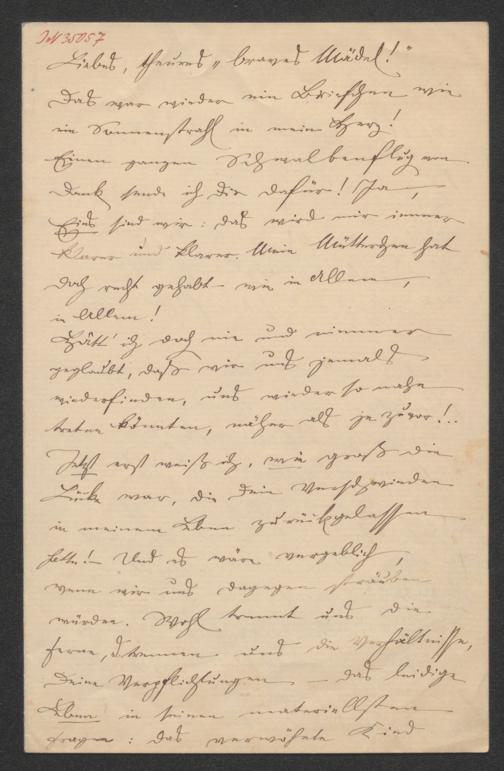 IN 35057
Liebes, theures „braves Mädel!"
Das war wieder ein Briefchen wie
ein Sonnenstrahl in mein Herz!
Einen ganzen Schwalbenflug von
Dank sende ich Dir dafür! Ja,
Eins sind wir: das wird mir immer
klarer und klarer. Mein Mütterchen hat
doch recht gehabt – wie in Allem,
in Allem!
Hätt' ich doch nie und nimmer
geglaubt, daß wir uns jemals
wiederfinden, uns wieder so nahe
treten könnten, näher als je zuvor!..
Jetzt erst weiß ich, wie groß die
Lücke war, die Dein Verschwinden
in meinem Leben zurückgelassen
hatte! Und es wäre vergeblich,
wenn wir uns dagegen sträuben
würden. Wohl trennt uns die
Ferne, trennen uns die Verhältnisse,
Deine Verpflichtungen – das leidige
Leben in seinen materiellsten
Fragen: das verwöhnte Kind